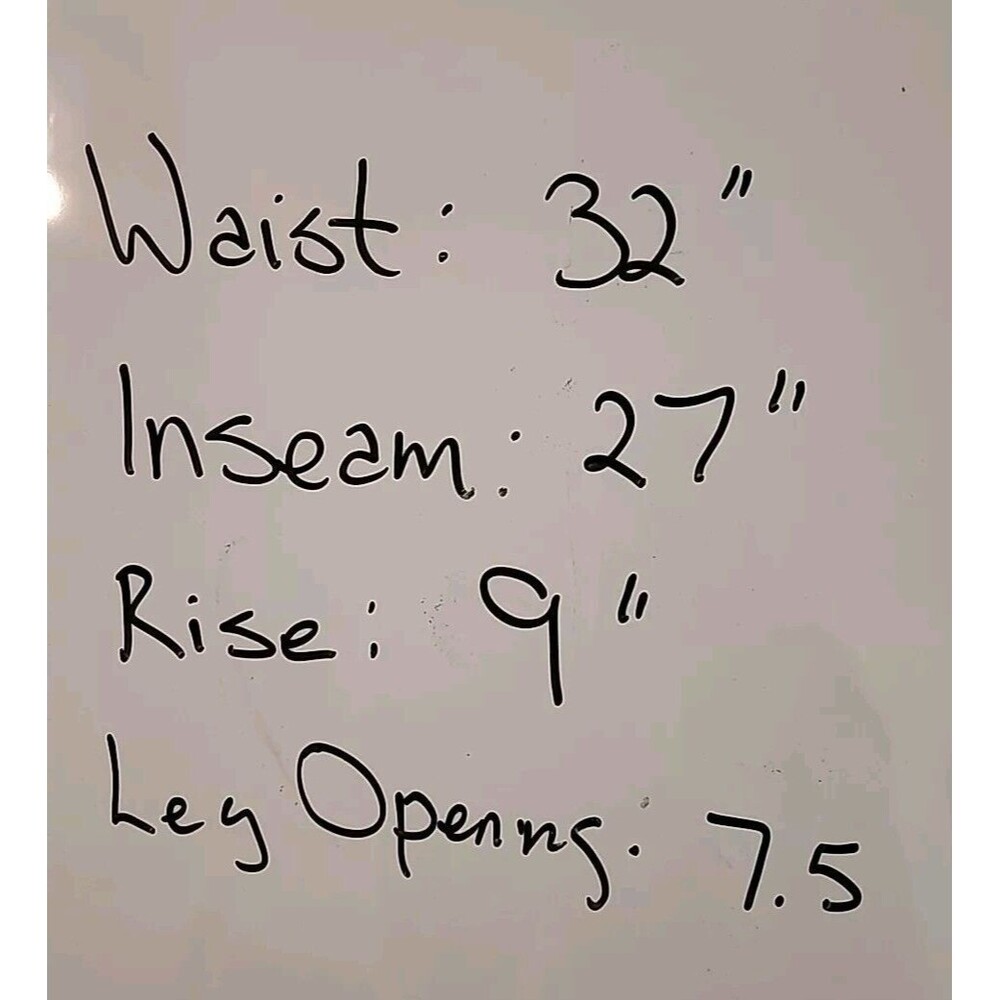 Waist: 32"
Inseam: 27"
Rise: 9"
Leg Opening: 7.5